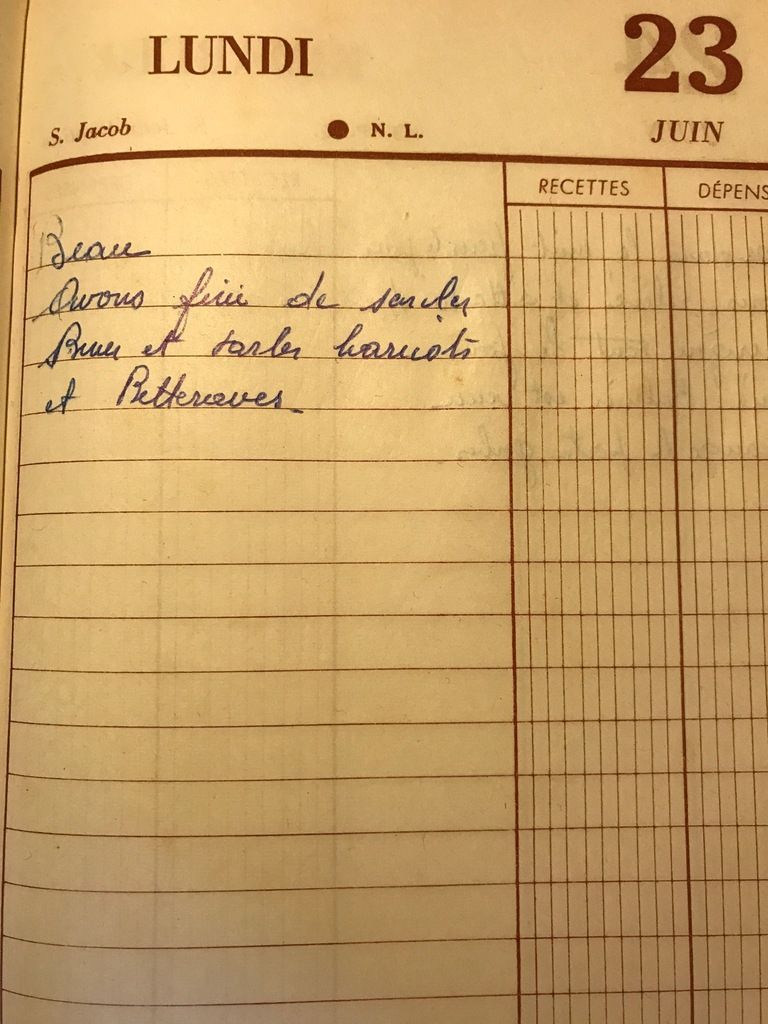 LUNDI 23
S. Jacob ● N. L. JUIN
RECETTES DÉPENS
Beau
Avons fini de sarcler
et sarler haricots
et Betteraves